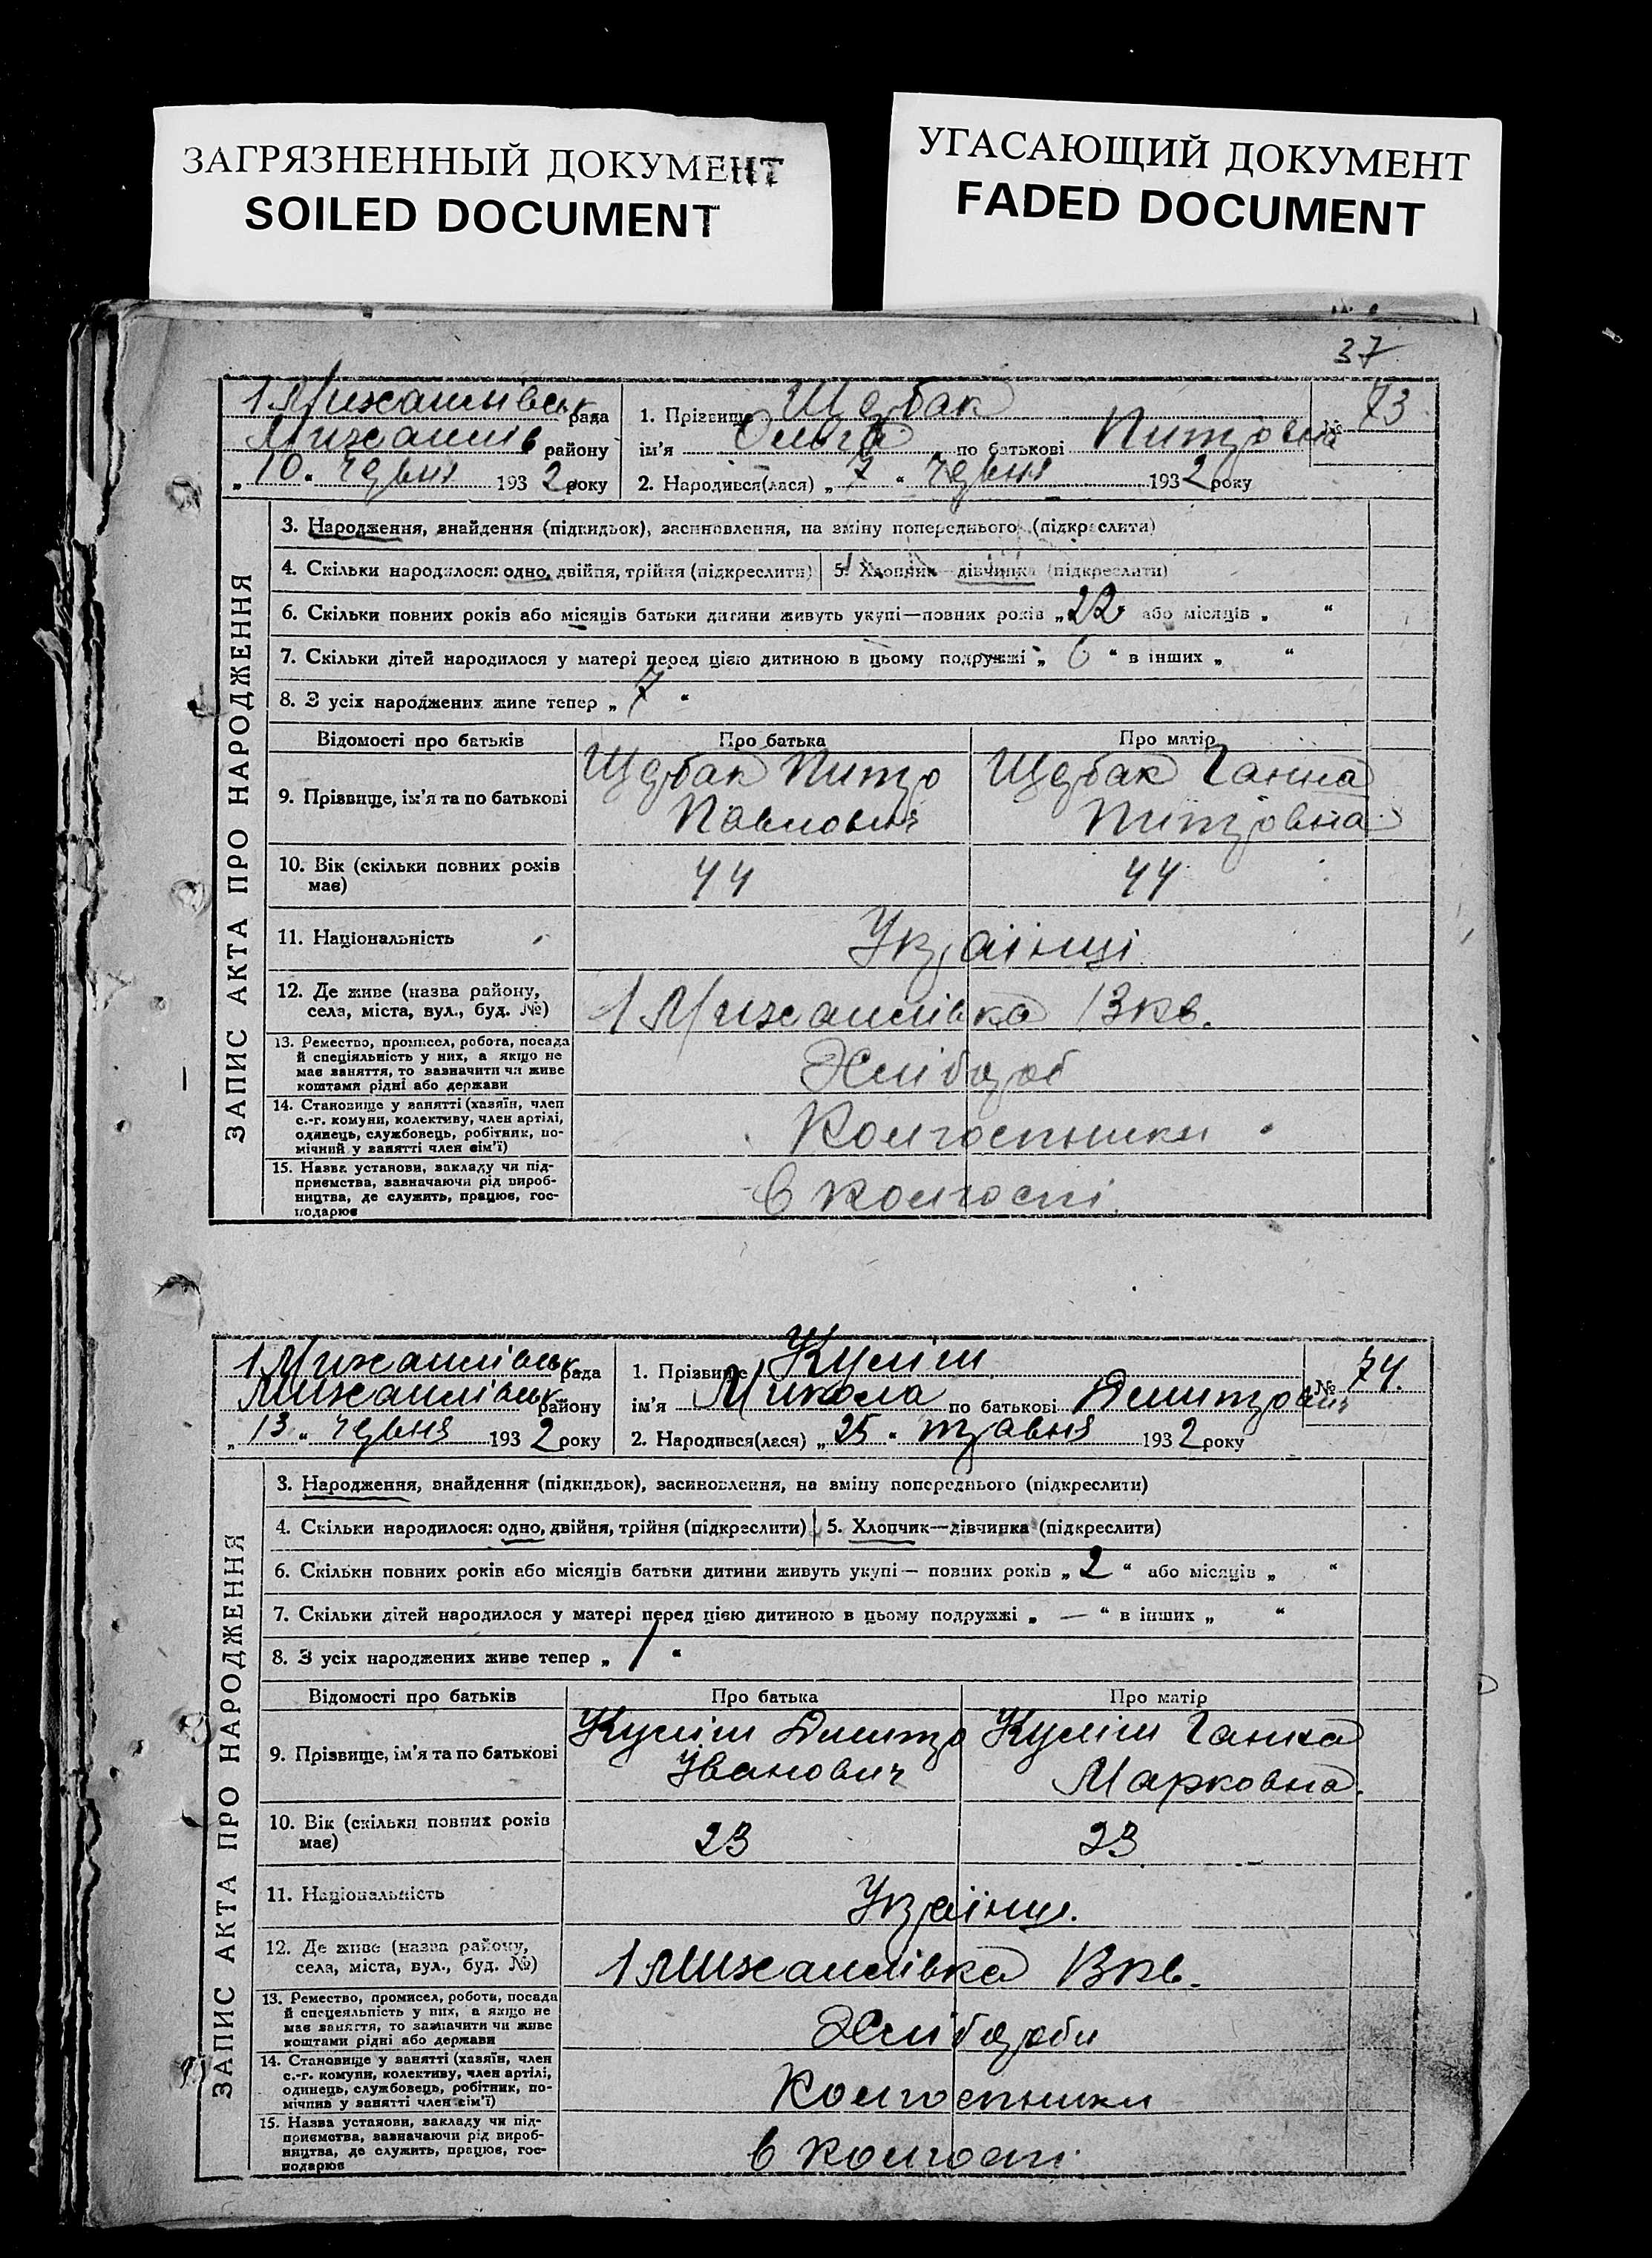 ЗАГРЯЗНЕННЫЙ ДОКУМЕНТ
SOILED DOCUMENT
УГАСАЮЩИЙ ДОКУМЕНТ
FADED DOCUMENT
37
1 Михайлівськ рада
Михайлів району
„10“ червня 1932 року
1. Прізвище Щербак
ім'я Ольга по батькові Питровна
2. Народився(лася) „7“ червня 1932 року
№ 73
ЗАПИС АКТА ПРО НАРОДЖЕННЯ
3. Народження, знайдення (підкидьок), засиновлення, на зміну попереднього (підкреслити)
4. Скільки народилося: одно, двійня, трійня (підкреслити) 5. Хлопчик—дівчинка (підкреслити)
6. Скільки повних років або місяців батьки дитини живуть укупі—повних років „22“ або місяців „ “
7. Скільки дітей народилося у матері перед цією дитиною в цьому подружжі „6“ в інших „ “
8. З усіх народжених живе тепер „7“
Відомості про батьків Про батька Про матір
9. Прізвище, ім'я та по батькові
Щербак Питро Щербак Ганна
Павлович Питровна
10. Вік (скільки повних років має) 44 44
11. Національність Українці
12. Де живе (назва району, села, міста, вул., буд. №) 1 Михайлівка 13 кв.
13. Ремество, промисел, робота, посада
й спеціяльність у них, а якщо не
має заняття, то зазначити чи живе
коштами рідні або держави
Хлібороб
14. Становище у занятті (хазяїн, член
с.-г. комуни, колективу, член артілі,
одинець, службовець, робітник, по-
мічний у занятті член сім'ї)
Колгоспники
15. Назва установи, закладу чи під-
приємства, зазначаючи рід вироб-
ництва, де служить, працює, гос-
подарює
в колгоспі.
1 Михайлівськ рада
Михайлівськ району
„13“ червня 1932 року
1. Прізвище Куліш
ім'я Микола по батькові Дмитрович
2. Народився(лася) „25“ травня 1932 року
№ 74.
ЗАПИС АКТА ПРО НАРОДЖЕННЯ
3. Народження, знайдення (підкидьок), засиновлення, на зміну попереднього (підкреслити)
4. Скільки народилося: одно, двійня, трійня (підкреслити) 5. Хлопчик—дівчинка (підкреслити)
6. Скільки повних років або місяців батьки дитини живуть укупі— повних років „2“ або місяців „ “
7. Скільки дітей народилося у матері перед цією дитиною в цьому подружжі „—“ в інших „ “
8. З усіх народжених живе тепер „1“
Відомості про батьків Про батька Про матір
9. Прізвище, ім'я та по батькові
Куліш Дмитро Куліш Ганна
Іванович Марковна.
10. Вік (скільки повних років має) 23 23
11. Національність Українці.
12. Де живе (назва району, села, міста, вул., буд. №) 1 Михайлівка 13 кв.
13. Ремество, промисел, робота, посада
й спецеяльність у них, а якщо не
має заняття, то зазначити чи живе
коштами рідні або держави
Хлібороби
14. Становище у занятті (хазяїн, член
с.-г. комуни, колективу, член артілі,
одинець, службовець, робітник, по-
мічнив у занятті член сім'ї)
Колгоспники
15. Назва установи, закладу чи під-
приємства, зазначаючи рід вироб-
ництва, де служить, працює, гос-
подарює
в колгоспі.